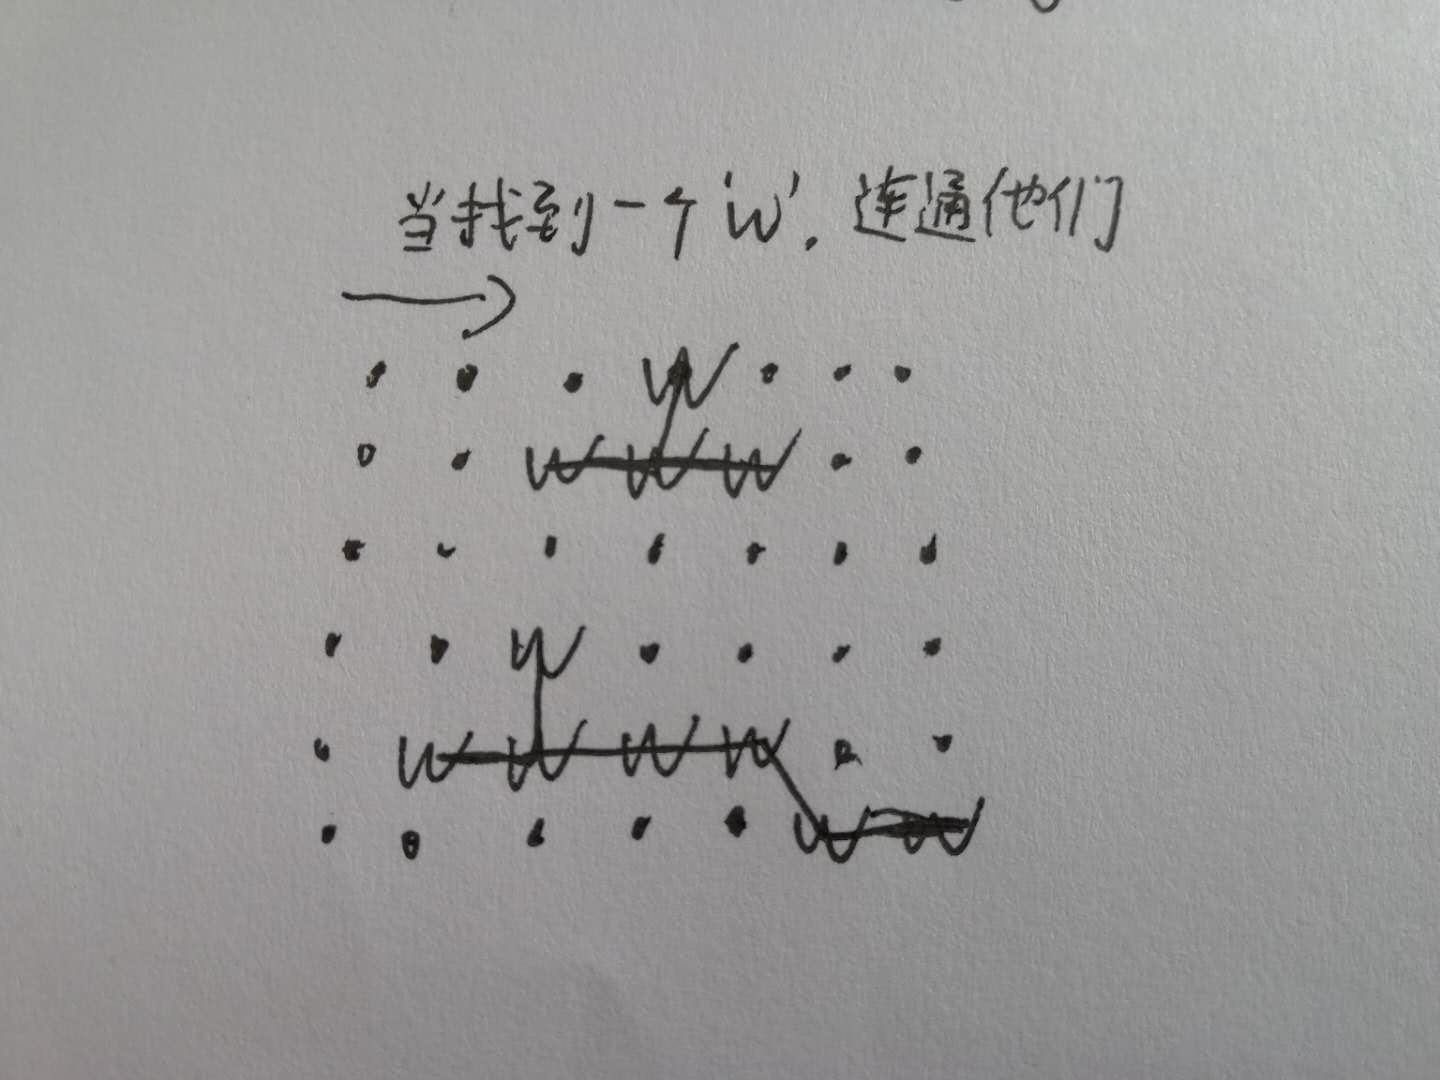 当找到一个'W'. 连通他们
. . . W . . .
. . W W W . .
. . . . . . .
. . W . . . .
. W W W W . .
. . . . . W W